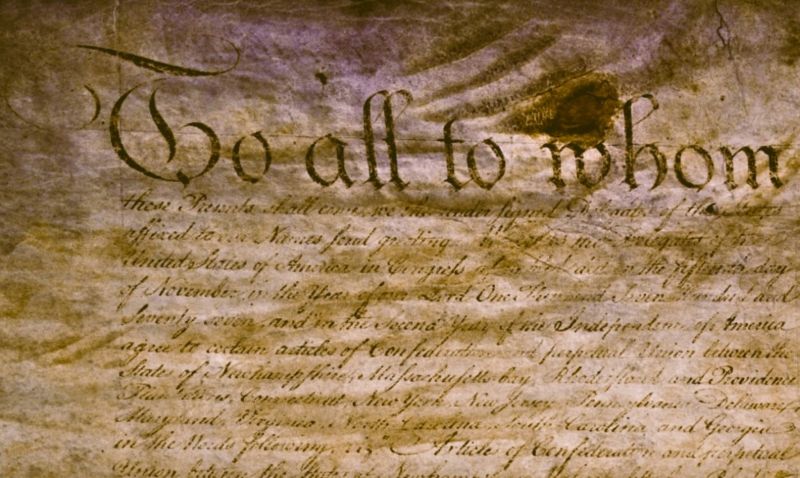 To all to whom
these Presents shall come, we the under signed Delegates of the States
affixed to our Names send greeting. Whereas the Delegates of the
United States of America in Congress assembled did on the fifteenth day
of November in the Year of our Lord One Thousand Seven Hundred and
Seventy seven, and in the Second Year of the Independence of America
agree to certain articles of Confederation and perpetual Union between the
States of Newhampshire, Massachusetts-bay, Rhodeisland and Providence
Plantations, Connecticut, New York, New Jersey, Pennsylvania, Delaware,
Maryland, Virginia, North Carolina, South Carolina and Georgia
in the Words following, viz. Articles of Confederation and perpetual
Union between the States of